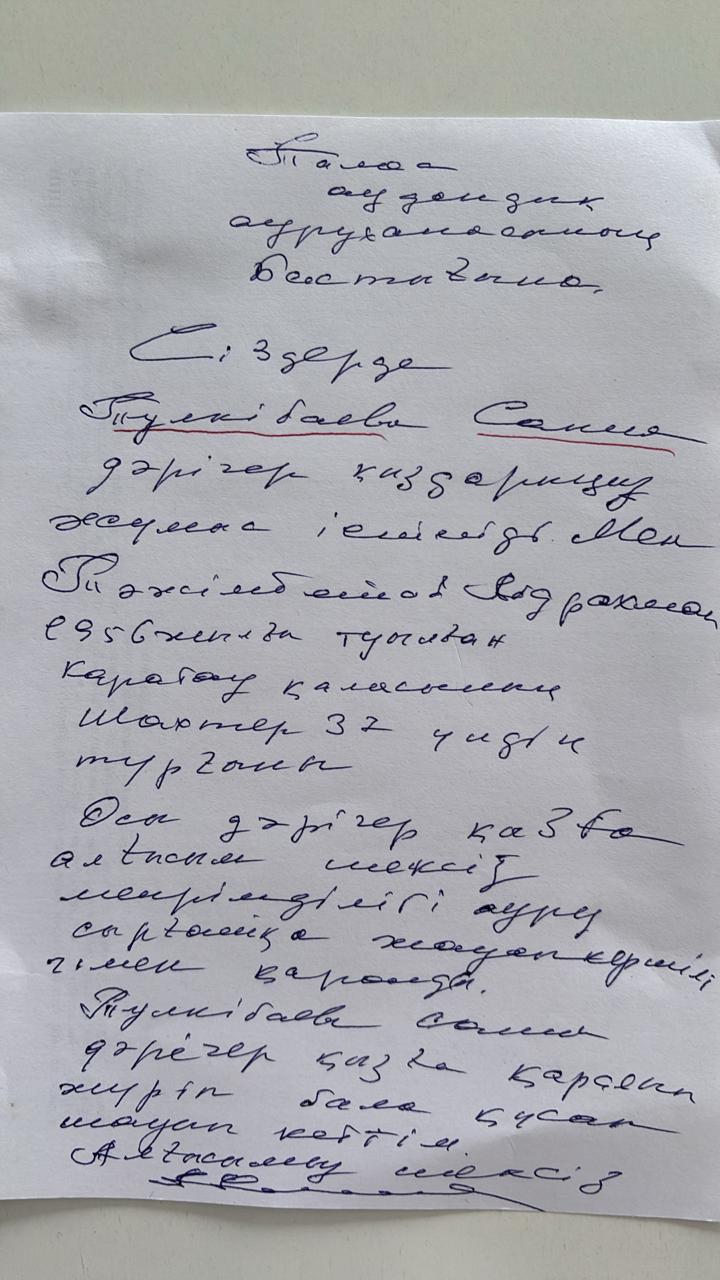 Талас
аудандық
ауруханасының
Бастығына.
Сіздерде
Тулкібаева Сания
дәрігер қыздарыңыз
жұмыс істейді. Мен
Тәжімбетов Абдрахман
1956 жылғы туылған
Қаратау қаласының
Шахтер 37 үйдің
тұрғыны
Осы дәрігер қызға
алғысым шексіз
мейрімділігі ауру
сырқатқа жауапкершілі
гімен қарайды.
Тулкібаева Сания
дәрігер қызға қаралып
жүріп бала құсап
жазып кеттім
Алғысымыз шексіз